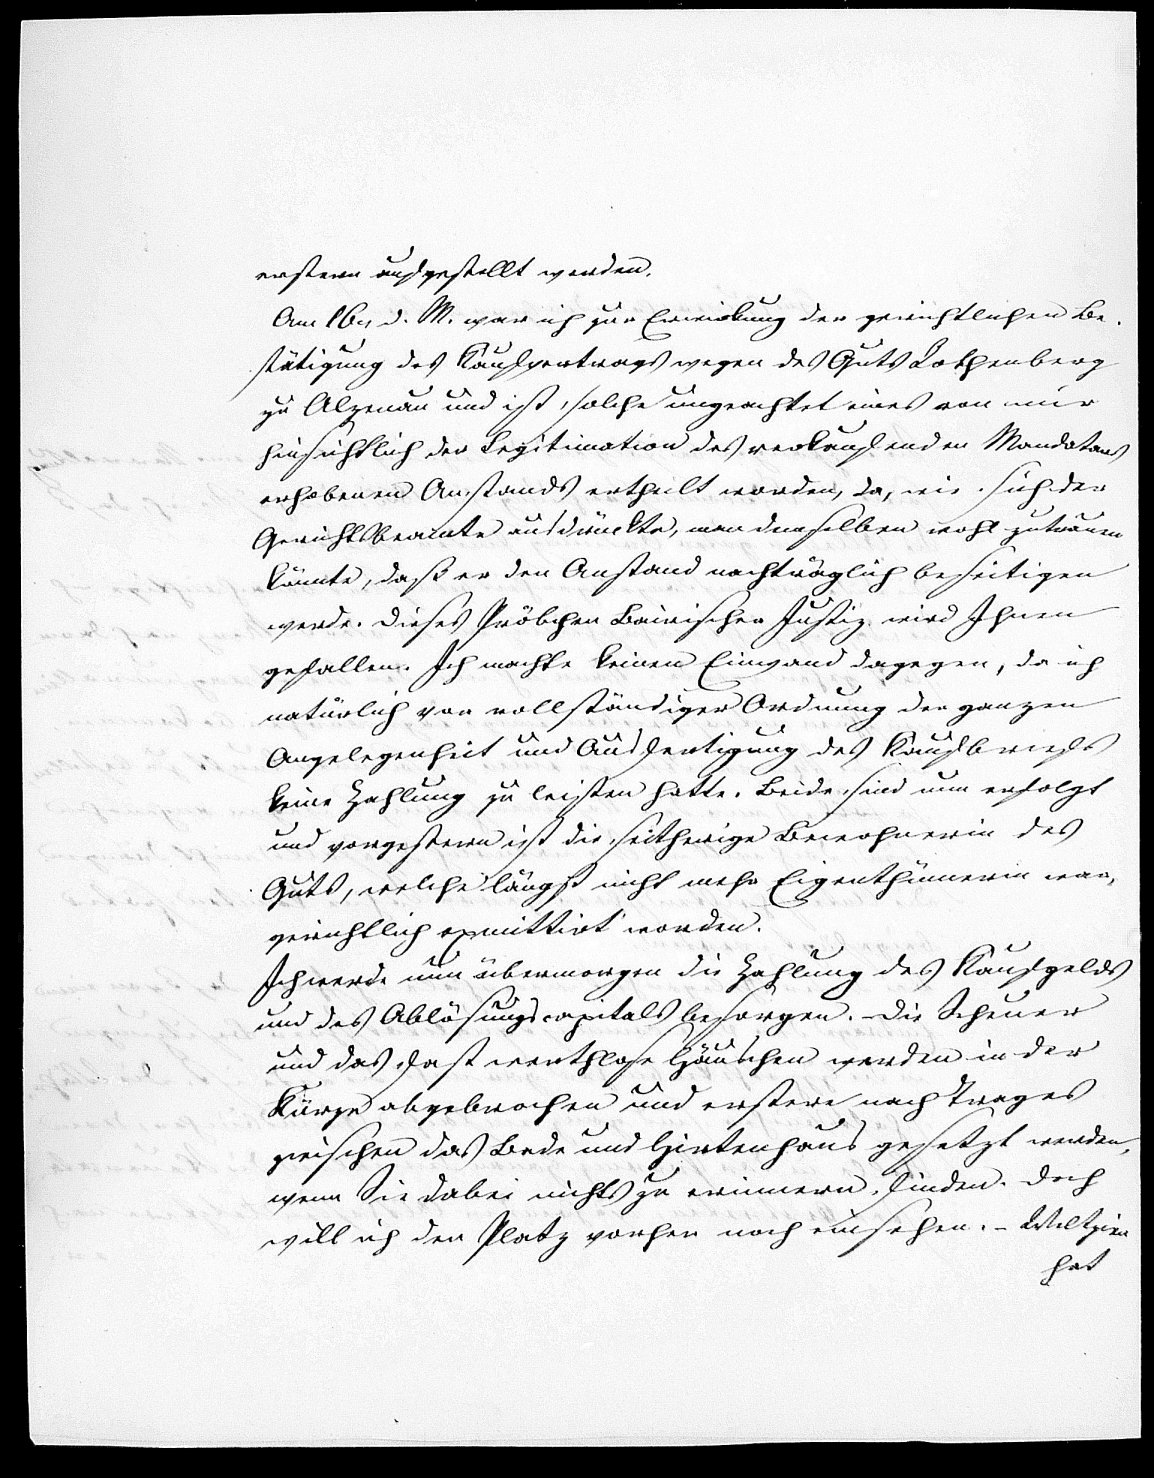 ersteren aufgestellt werden.
Am 16n d. M. war ich zur Erwirkung der gerichtlichen Be-
stätigung des Kaufvertrags wegen des Guts Rothenberg
zu Alzenau und ist solche ungeachtet eines von mir
hinsichtlich der Legitimation des verkaufenden Mandatars
erhobenen Anstands ertheilt worden, da, wie sich der
Gerichtsbeamte ausdrückte, man demselben wohl zutrauen
könnte, daß er den Anstand nachträglich beseitigen
werde. Dieses Pröbchen Bairischer Justiz wird Ihnen
gefallen. Ich machte keinen Einwand dagegen, da ich
natürlich vor vollständiger Ordnung der ganzen
Angelegenheit und Ausfertigung des Kaufbriefs
keine Zahlung zu leisten hatte. Beide sind nun erfolgt
und vorgestern ist die seitherige Bewohnerin des
Guts, welche längst nicht mehr Eigenthümerin war,
gerichtlich exmittirt worden.
Ich werde nun übermorgen die Zahlung des Kaufgelds
und des Ablösungscapitals besorgen. – Die Scheuer
und das fast werthlose Häuschen werden in der
Kürze abgebrochen und erstere nach Trages
zwischen das Bade und Hirtenhaus gesetzt werden,
wenn Sie dabei nichts zu erinnern finden. Doch
will ich den Platz vorher noch einsehen. – Weltzien
hat